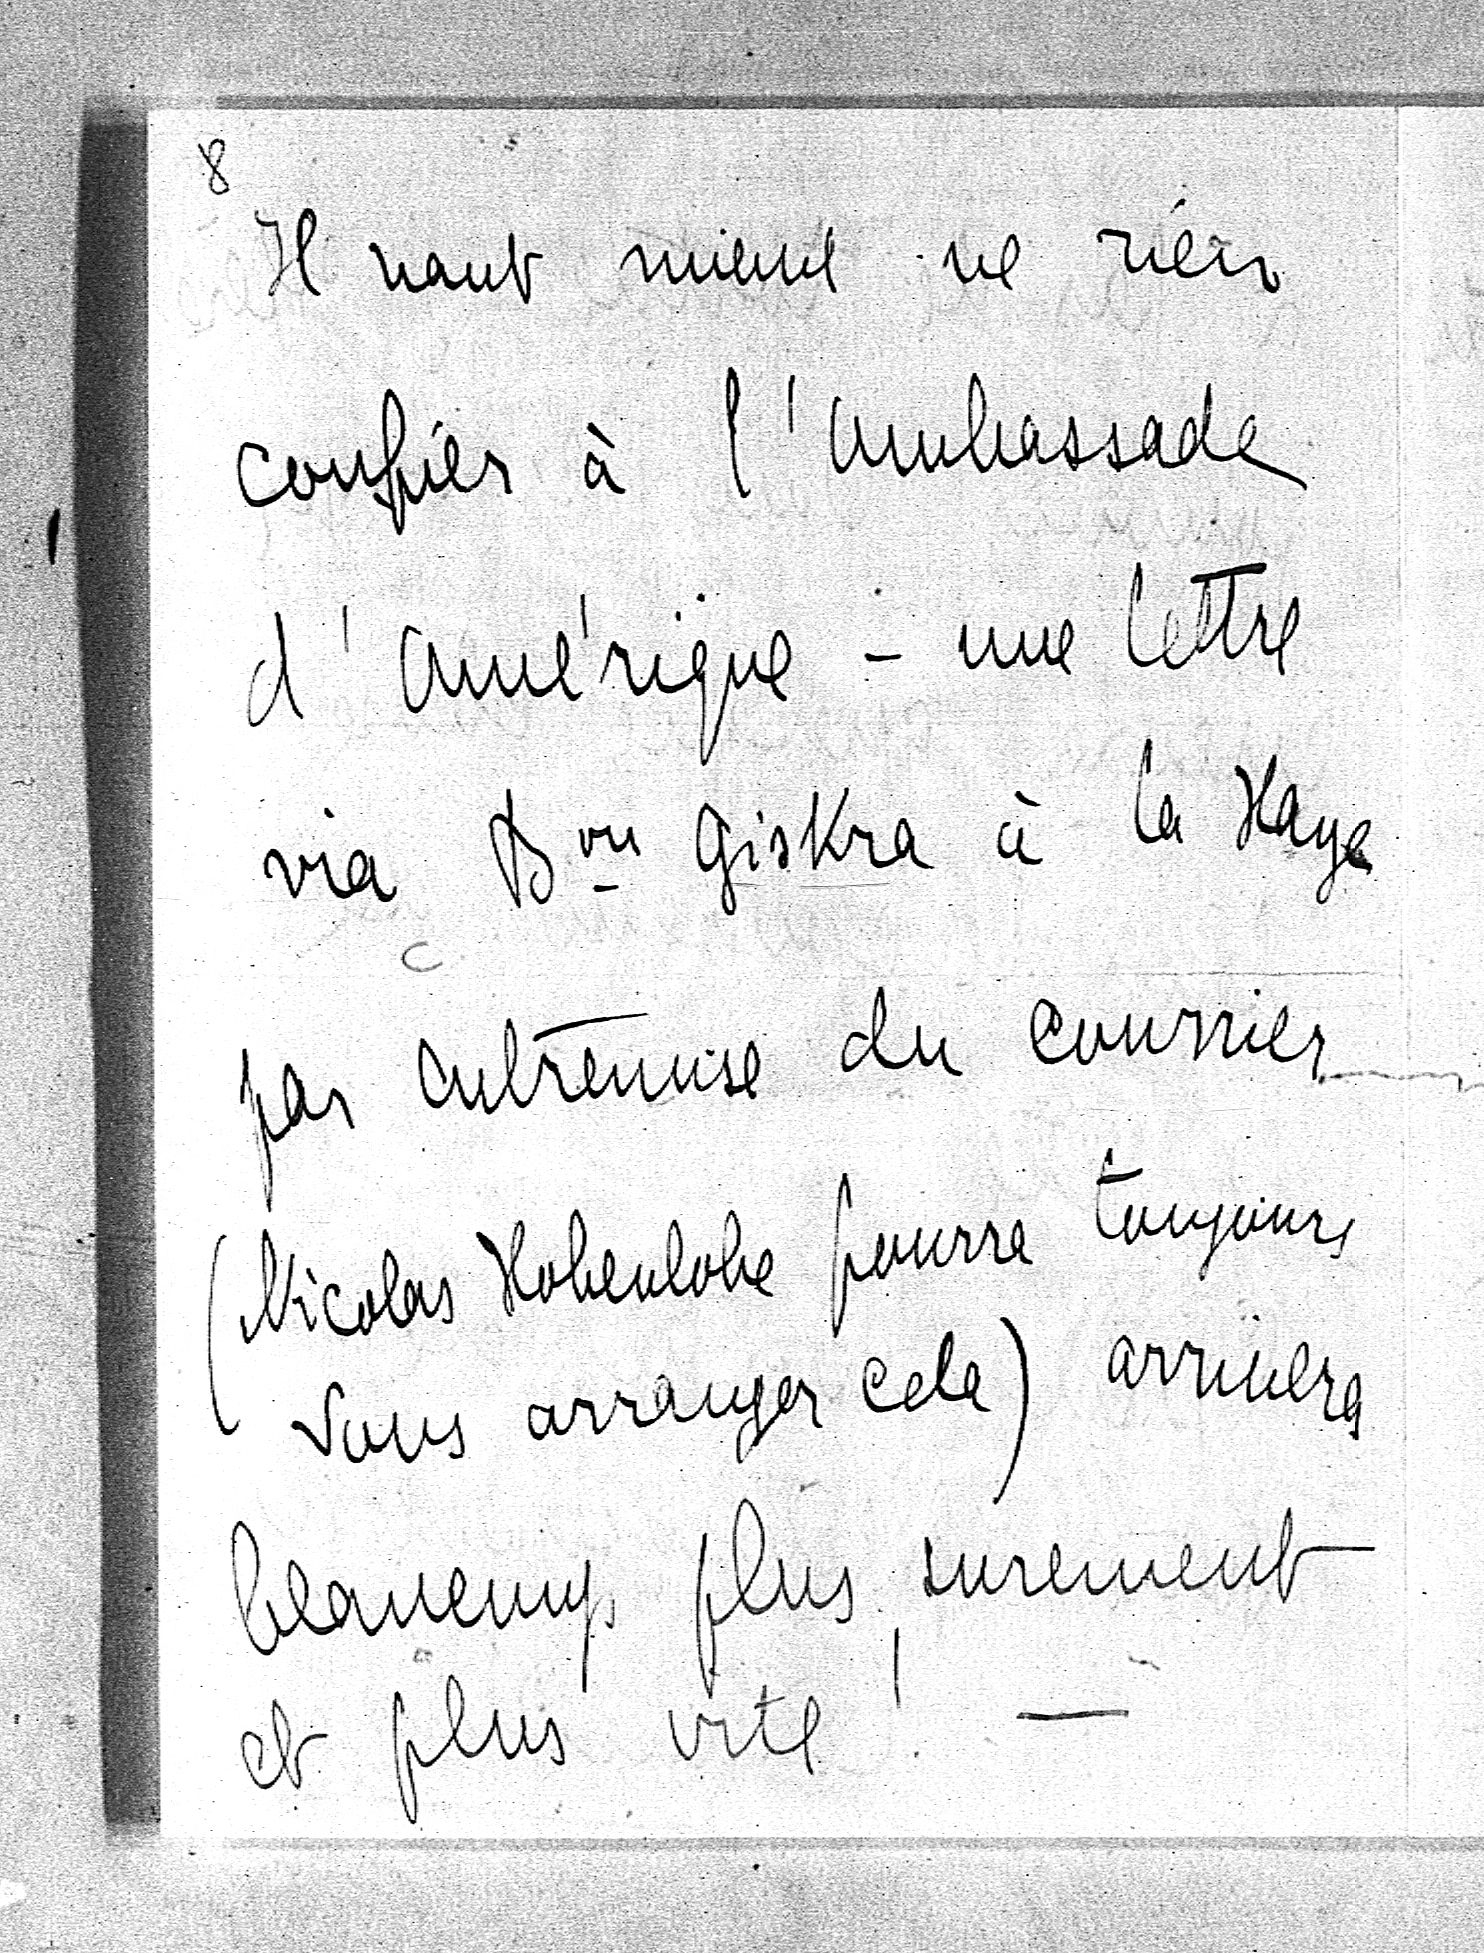 8
Il vaut mieux ne rien
confier à l'ambassade
d'Amérique - une lettre
via Bon Giskra à la Haye
par entremise du courrier
(Nicolas Hohenlohe pourra toujours
vous arranger cela) arrivera
beaucoup plus surement
et plus vite! —